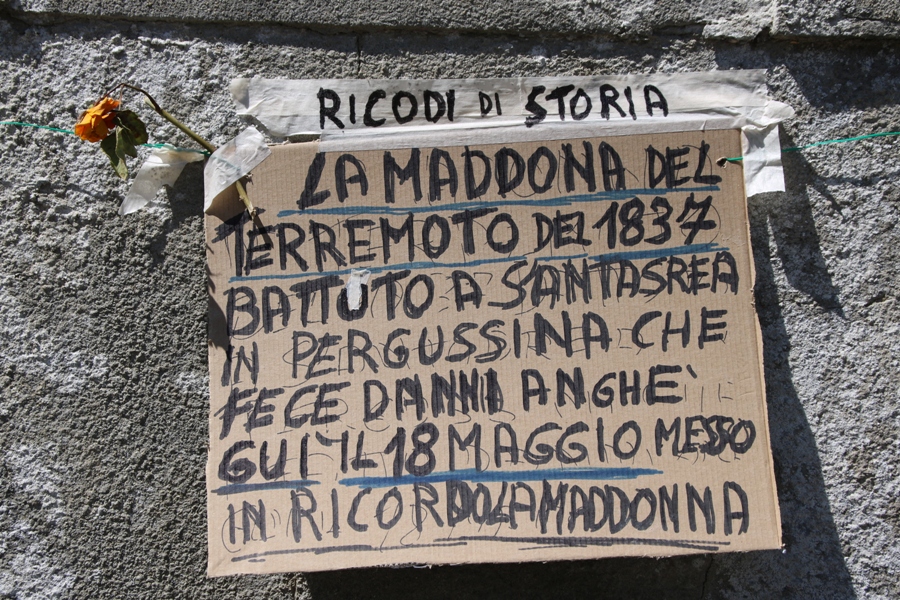 RICODI DI STORIA
LA MADDONA DEL
TERREMOTO DEL 1837
BATTUTO A S'ANTASREA
IN PERGUSSINA CHE
FECE DANNI ANGHE'
GUI IL 18 MAGGIO MESSO
IN RICORDO LA MADDONNA